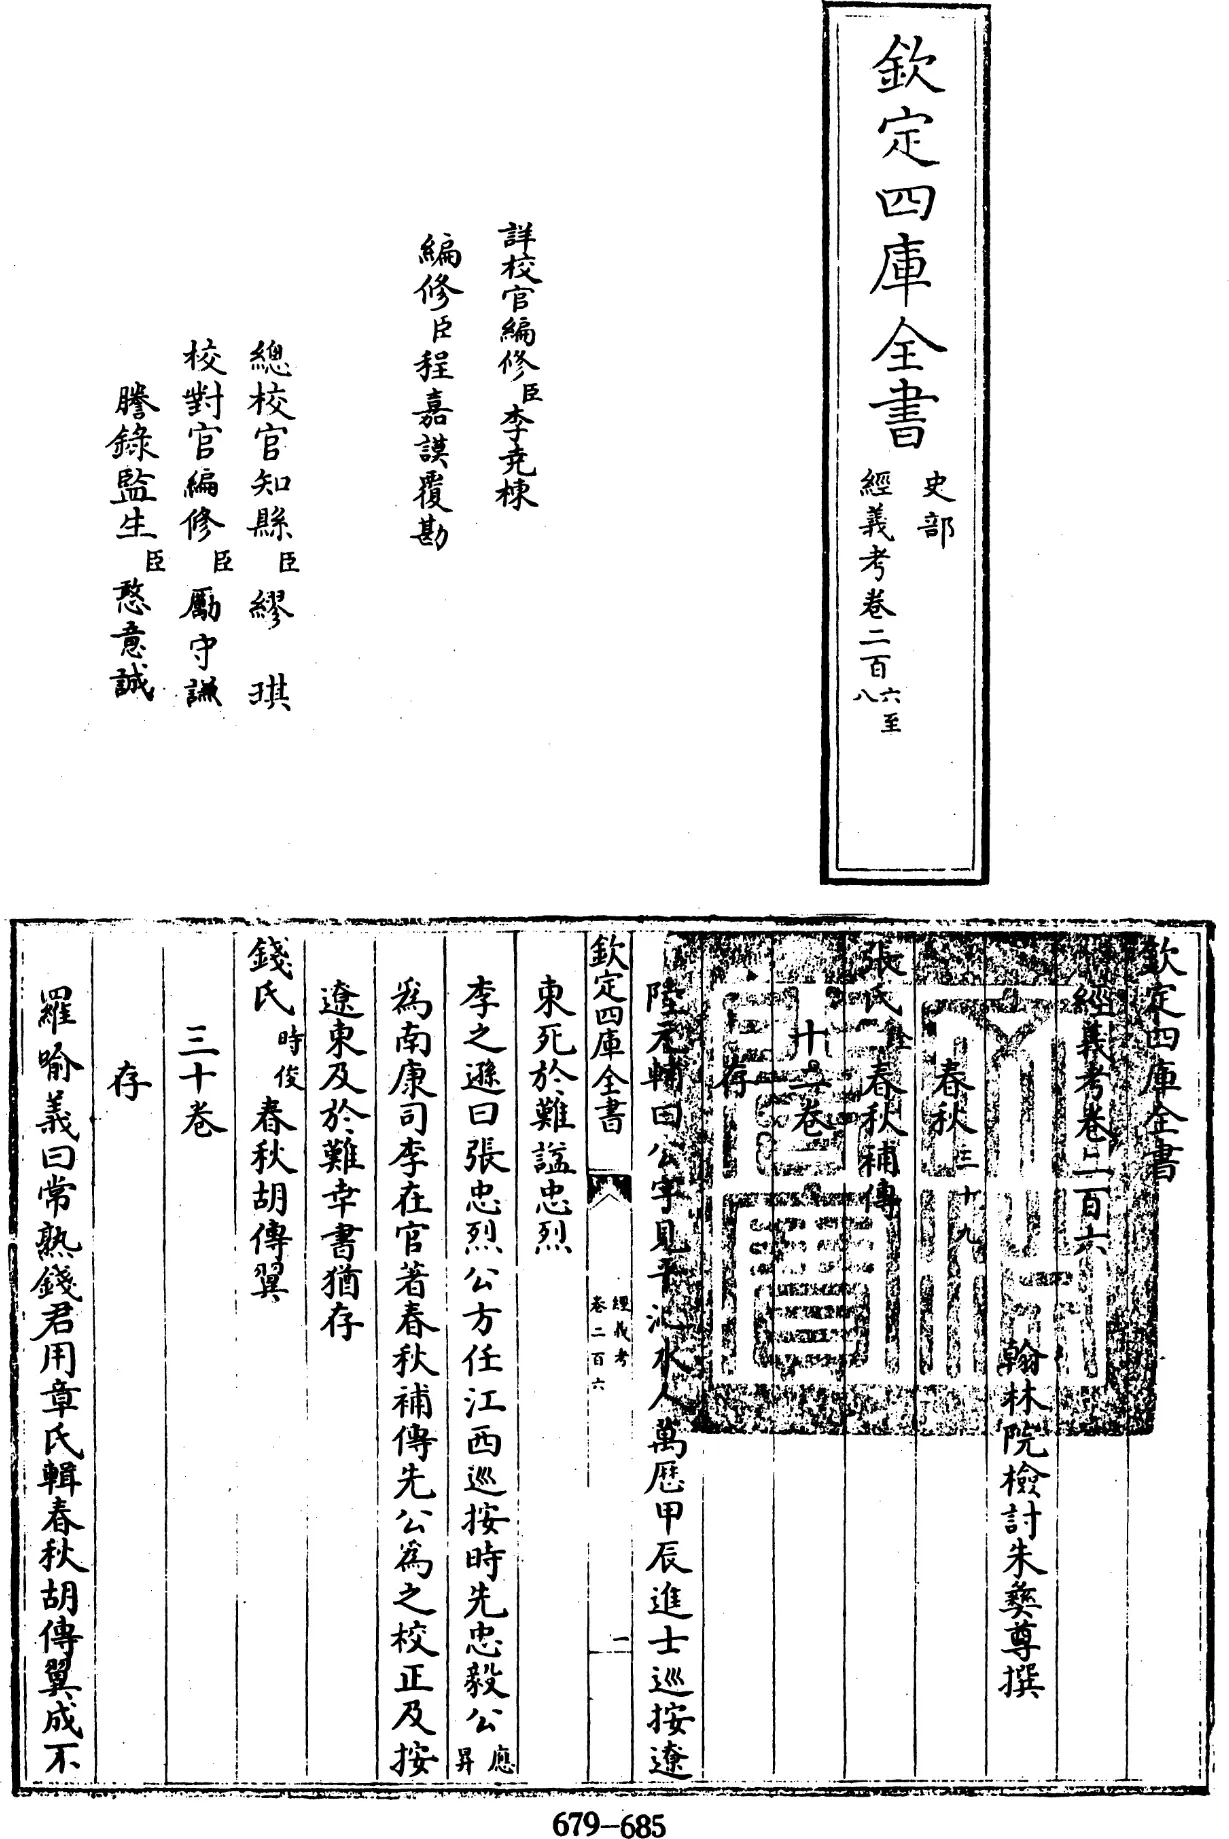 欽定四庫全書
史部
經義考卷二百六至
八
詳校官編修臣李堯棟
編修臣程嘉謨覆勘
總校官知縣臣繆琪
校對官編修臣勵守謙
謄錄監生臣憨意誠
欽定四庫全書
經義考卷二百六
翰林院檢討朱彝尊撰
春秋三十九
張氏銓春秋補傳
十二卷
存
陸元輔曰公字見平沁水人萬厯甲辰進士巡按遼
欽定四庫全書
經義考
卷二百六
一
東死於難諡忠烈
李之遜曰張忠烈公方任江西巡按時先忠毅公應昇
為南康司李在官著春秋補傳先公為之校正及按
遼東及於難幸書猶存
錢氏時俊春秋胡傳翼
三十卷
存
羅喻義曰常熟錢君用章氏輯春秋胡傳翼成不
679-685